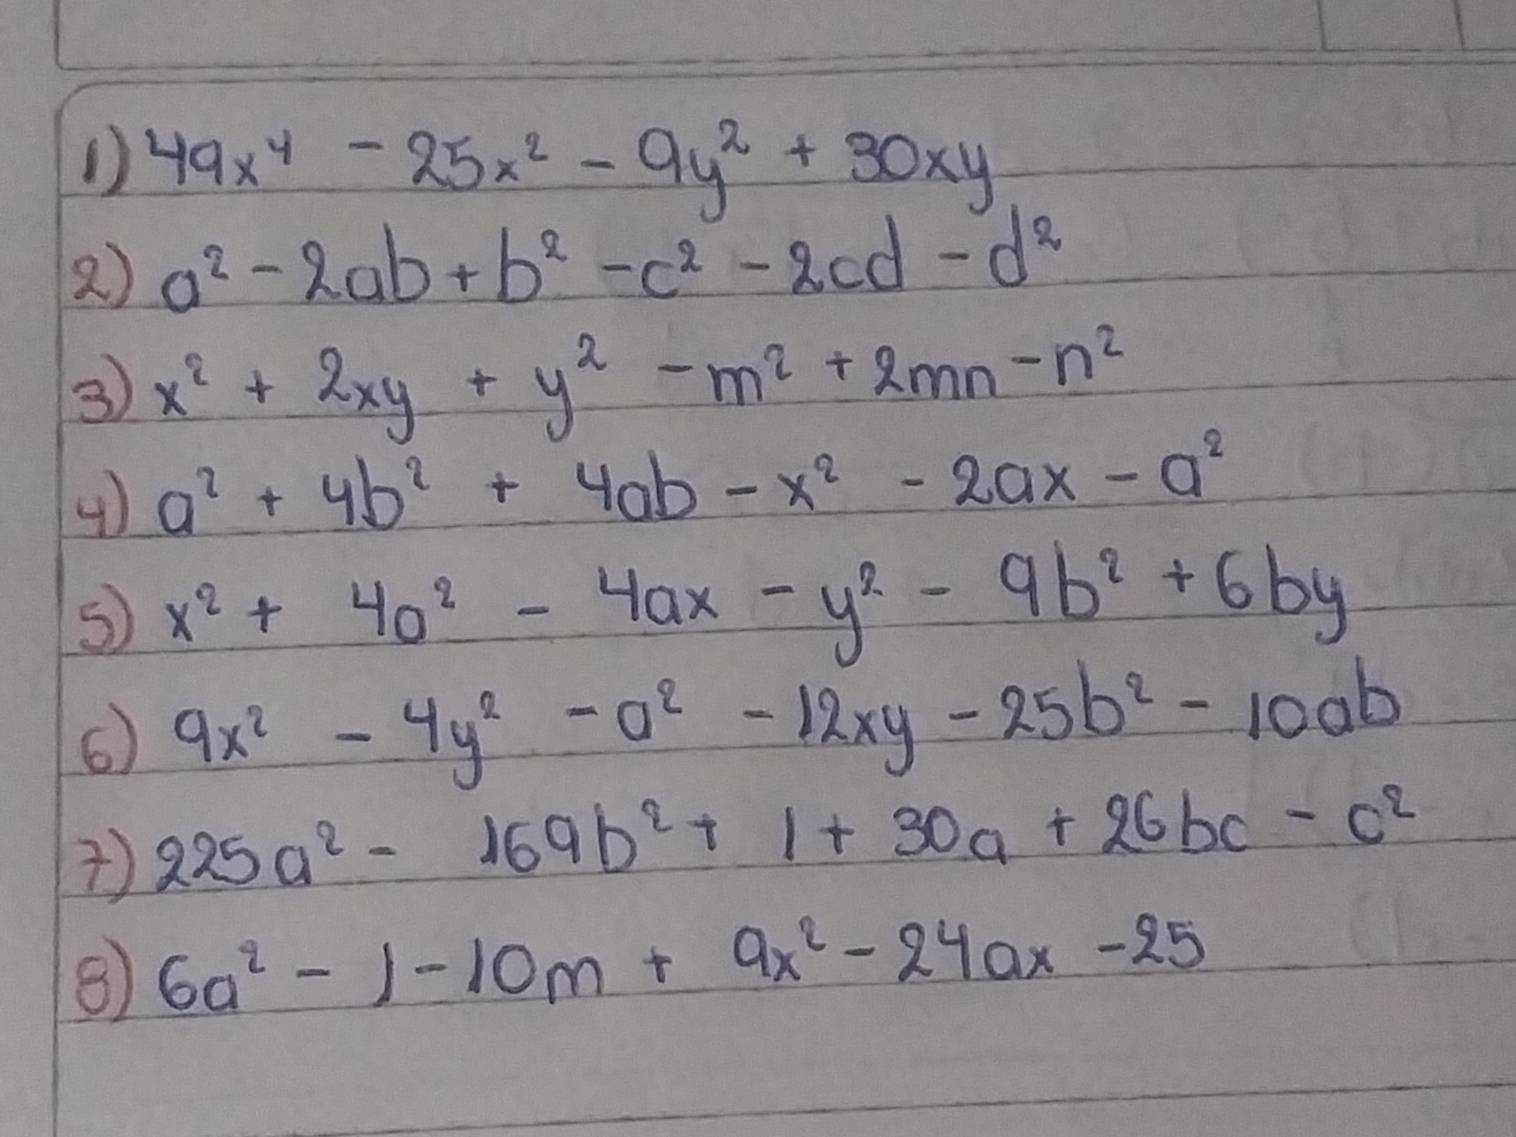 1) 49x⁴ - 25x² - 9y² + 30xy
2) a² - 2ab + b² - c² - 2cd - d²
3) x² + 2xy + y² - m² + 2mn - n²
4) a² + 4b² + 4ab - x² - 2ax - a²
5) x² + 4a² - 4ax - y² - 9b² + 6by
6) 9x² - 4y² - a² - 12xy - 25b² - 10ab
7) 225a² - 169b² + 1 + 30a + 26bc - c²
8) 6a² - 1 - 10m + 9x² - 24ax - 25